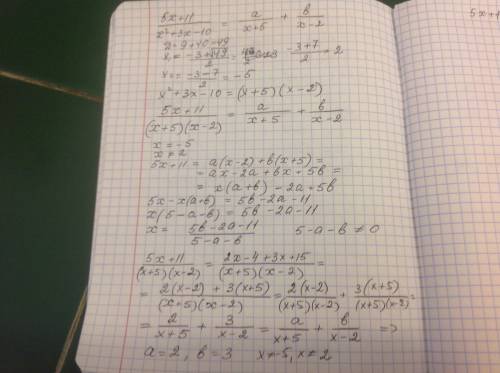 5x+11/(x²+3x-10) = a/(x+5) + b/(x-2)
D=9+40=49
x₁= (-3+√49)/2 = (-3+7)/2 = 2
x₂= (-3-7)/2 = -5
x²+3x-10=(x+5)(x-2)
(5x+11)/((x+5)(x-2)) = a/(x+5) + b/(x-2)
x=-5
x≠2
5x+11 = a(x-2)+b(x+5)=
= ax-2a+bx+5b=
= x(a+b)-2a+5b
5x-x(a+b)=5b-2a-11
x(5-a-b)=5b-2a-11
x= (5b-2a-11)/(5-a-b) 5-a-b≠0
(5x+11)/((x+5)(x-2)) = (2x-4+3x+15)/((x+5)(x-2)) =
= (2(x-2)+3(x+5))/((x+5)(x-2)) = 2(x-2)/((x+5)(x-2)) + 3(x+5)/((x+5)(x-2)) =
= 2/(x+5) + 3/(x-2) = a/(x+5) + b/(x-2) =>
a=2, b=3 x≠-5, x≠2
5x+1